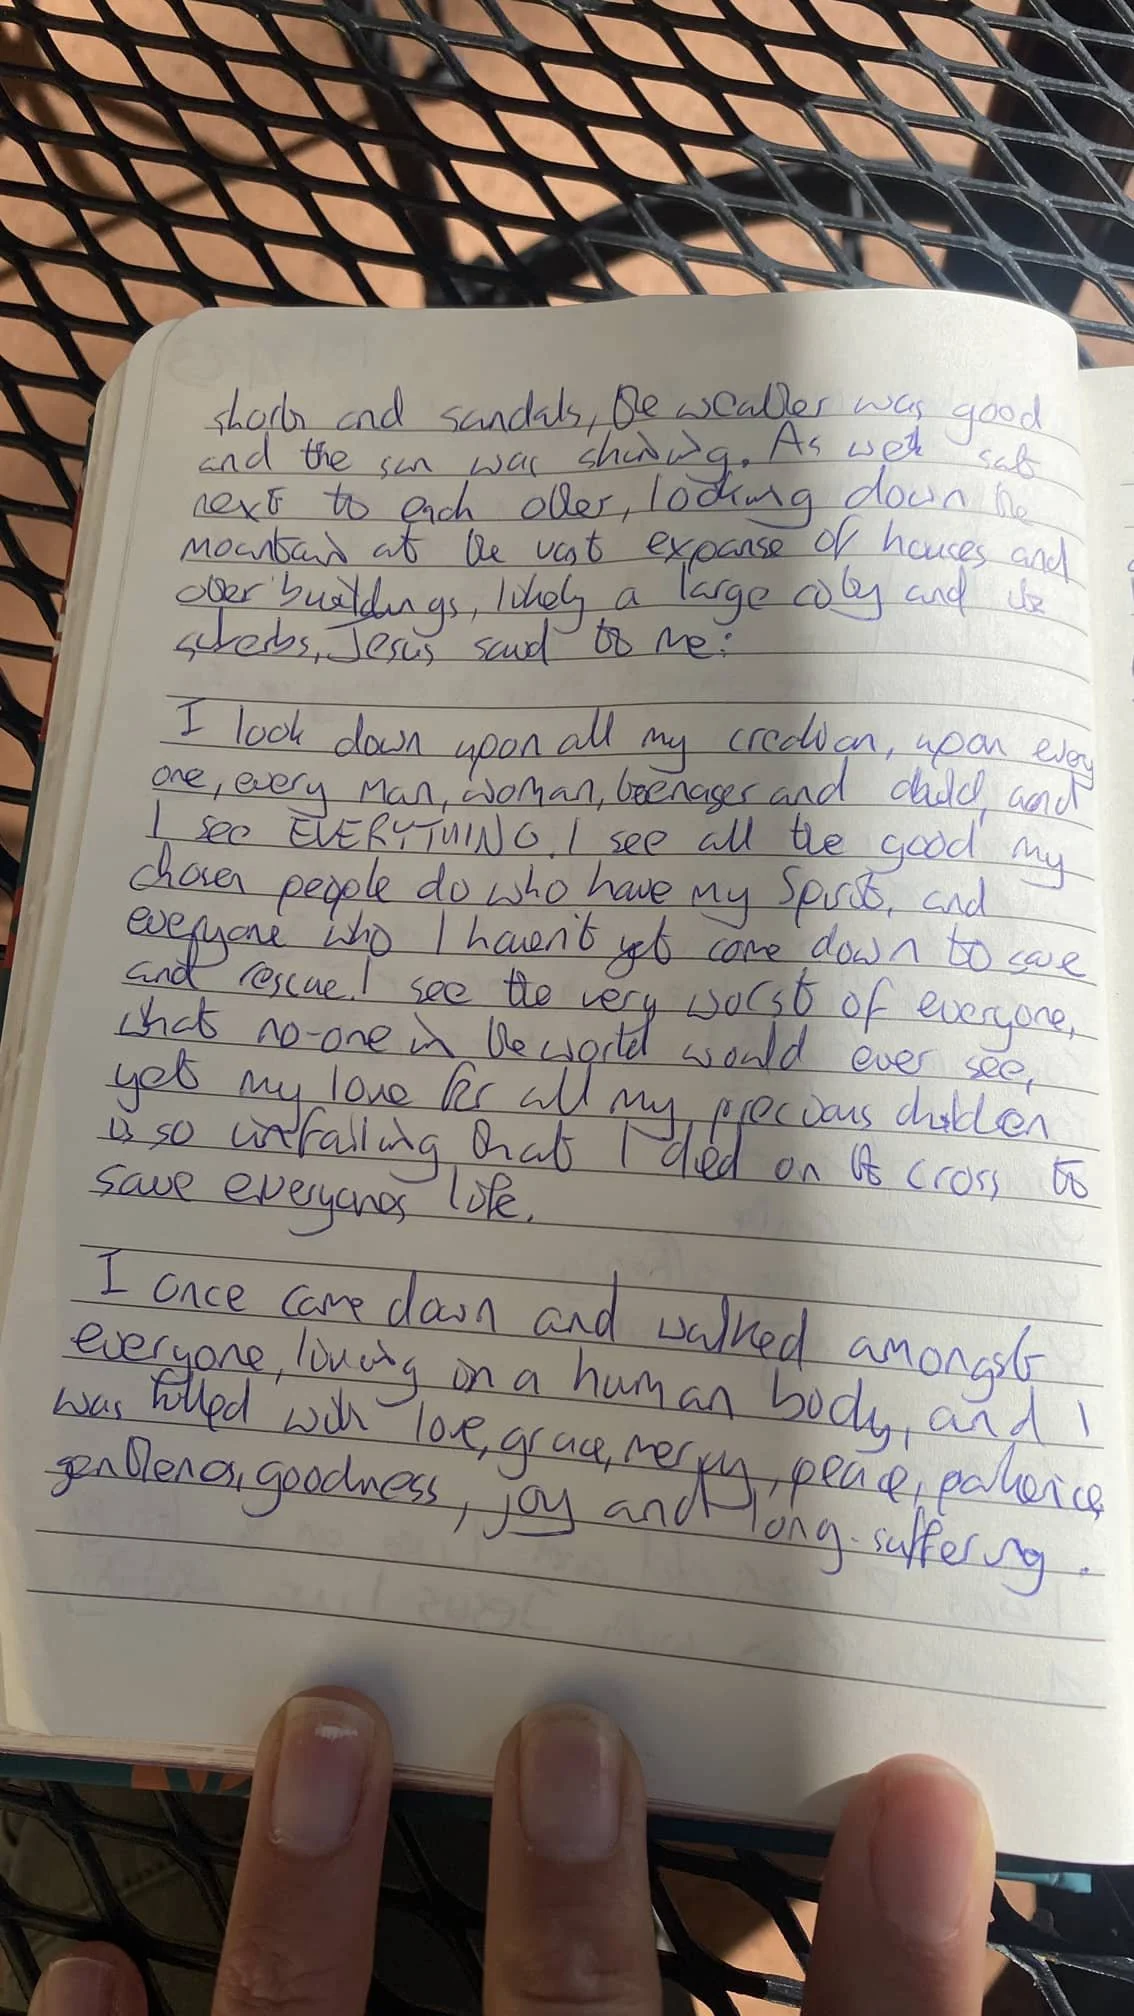 shorts and sandals, the weather was good
and the sun was shining. As we sat
next to each other, looking down the
mountain at the vast expanse of houses and
other buildings, likely a large city and its
suberbs, Jesus said to me:
I look down upon all my creation, upon every
one, every man, woman, teenager and child, and
I see EVERYTHING. I see all the good my
chosen people do who have my Spirit, and
everyone who I haven't yet come down to save
and rescue. I see the very worst of everyone,
what no-one in the world would ever see,
yet my love for all my precious children
is so unfailing that I died on the cross to
save everyones life.
I once came down and walked amongst
everyone, living in a human body, and I
was filled with love, grace, mercy, peace, patience,
gentleness, goodness, joy and long-suffering.